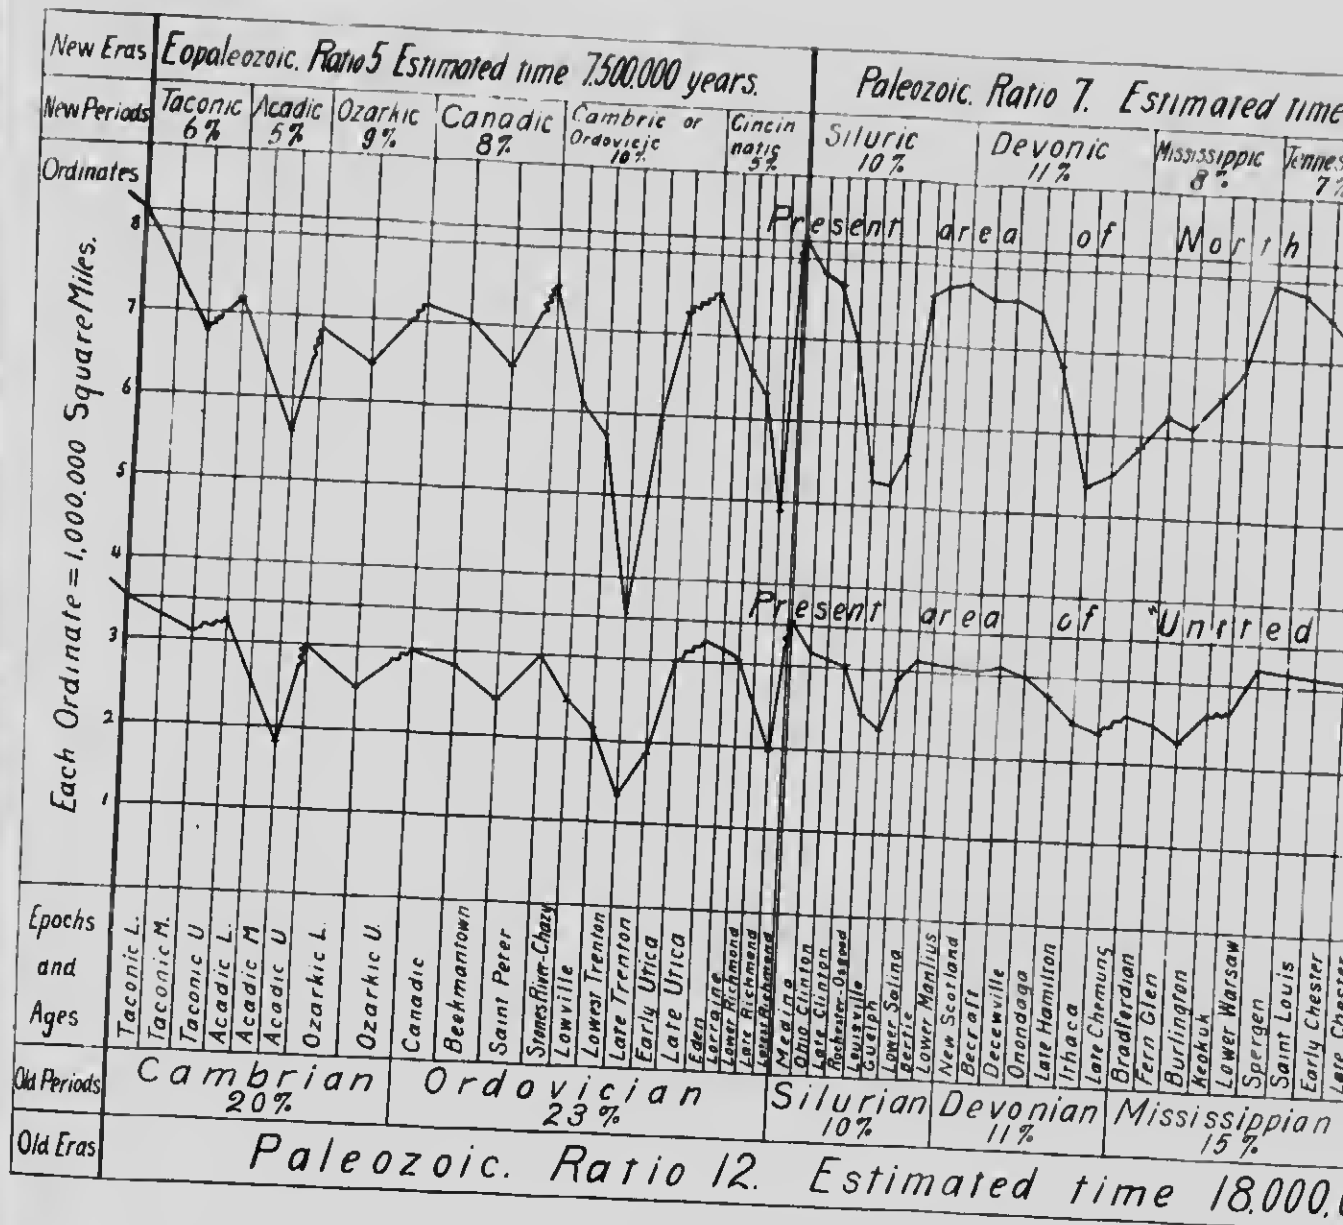 New Eras
Eopaleozoic. Ratio 5 Estimated time 7.500.000 years.
Paleozoic. Ratio 7. Estimated time
New Periods
Taconic 6%
Acadic 5%
Ozarkic 9%
Canadic 8%
Cambric or
Ordovicic
10%
Cincin
natic
5%
Siluric
10%
Devonic
11%
Mississippic
8%
Tennes
7%
Ordinates
Each Ordinate = 1,000.000 Square Miles.
8
7
6
5
4
3
2
1
Present area of North
Present area of "United
Epochs
and
Ages
Taconic L.
Taconic M.
Taconic U
Acadic L.
Acadic M
Acadic U
Ozarkic L.
Ozarkic U.
Canadic
Beekmantown
Saint Peter
Stones River-Chazy
Lowville
Lowest Trenton
Late Trenton
Early Utica
Late Utica
Eden
Lorraine
Lower Richmond
Late Richmond
Latest Richmond
Medina
Ohio Clinton
Late Clinton
Rochester-Osgood
Louisville
Guelph
Lower Salina
Bertie
Lower Manlius
New Scotland
Becraft
Decewville
Onondaga
Late Hamilton
Ithaca
Late Chemung
Bradferdian
Fern Glen
Burlington
Keokuk
Lower Warsaw
Spergen
Saint Louis
Early Chester
Late Chester
Old Periods
Cambrian
20%
Ordovician
23%
Silurian
10%
Devonian
11%
Mississippian
15%
Old Eras
Paleozoic. Ratio 12. Estimated time 18.000.